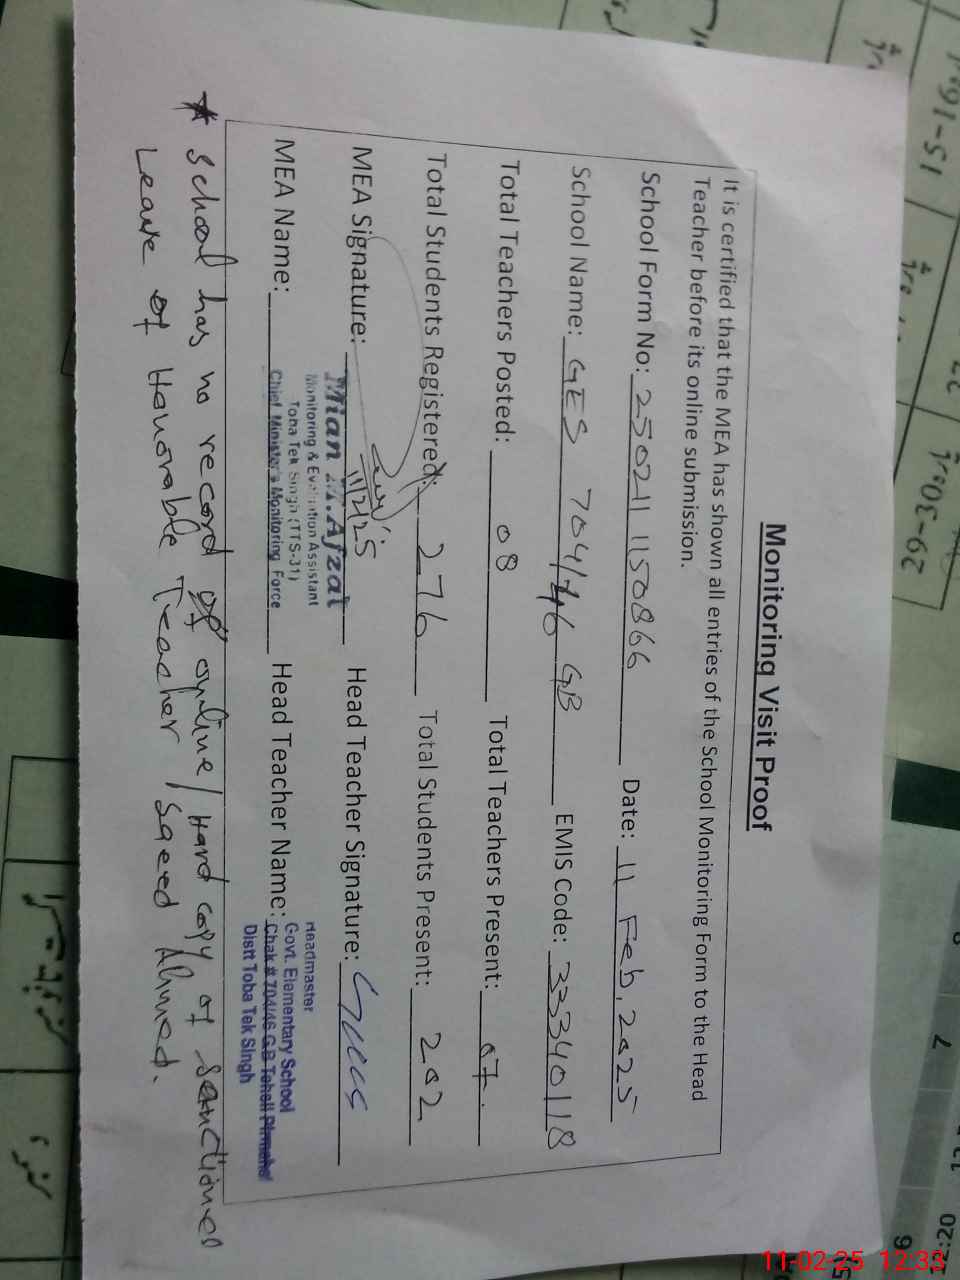 Monitoring Visit Proof
It is certified that the MEA has shown all entries of the School Monitoring Form to the Head
Teacher before its online submission.
School Form No: 250211150866 Date: 11 Feb, 2025
School Name: GES 704/46 GB EMIS Code: 33340118
Total Teachers Posted: 08 Total Teachers Present: 07.
Total Students Registered: 276 Total Students Present: 202
MEA Signature: 11/2/25 Head Teacher Signature:
Mian M.Afzal
Monitoring & Evaluation Assistant
Toba Tek Singh (TTS-31)
Chief Minister's Monitoring Force
MEA Name: Head Teacher Name:
Headmaster
Govt. Elementary School
Chak # 704/46 G.B Tehsil Pirmahal
Distt Toba Tek Singh
* School has no record of online/Hard copy, of sanctioned
Leave of Honorable Teacher / Saeed Ahmed.
15-16
29-30
11-02-25 12:33